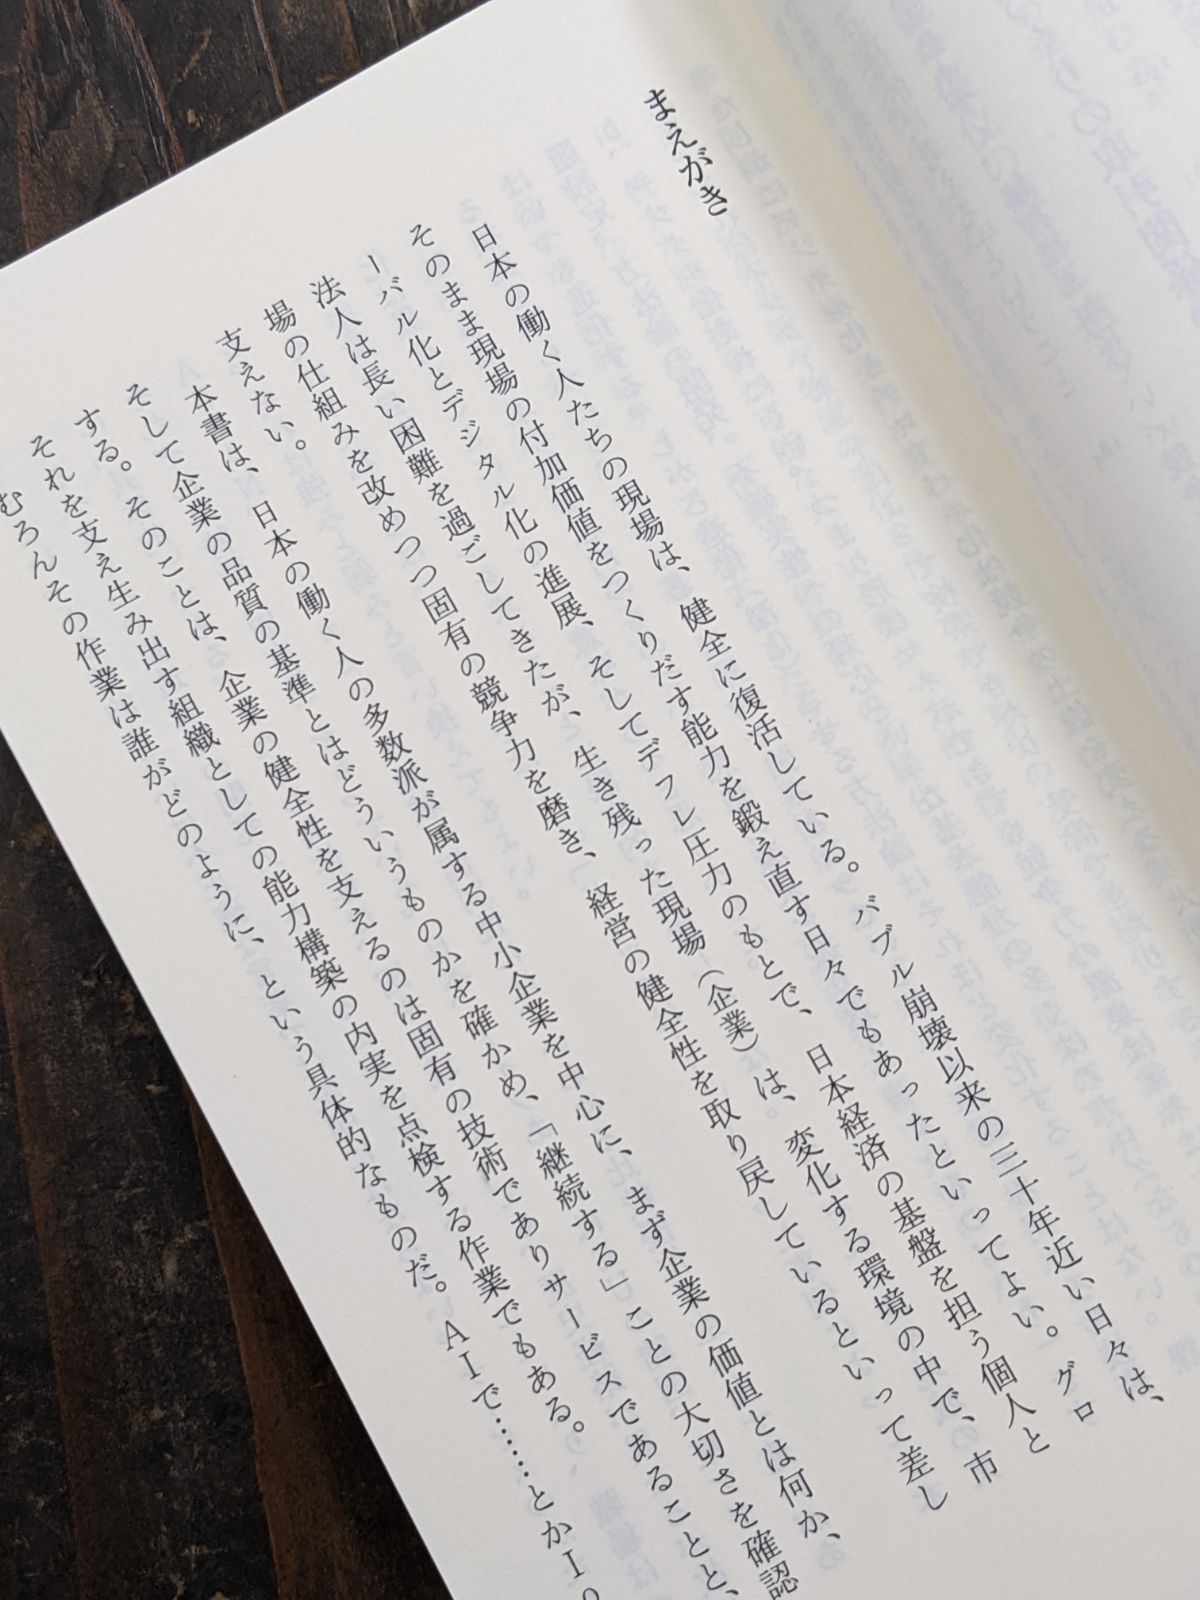 まえがき
日本の働く人たちの現場は、健全に復活している。バブル崩壊以来の三十年近い日々は、
そのまま現場の付加価値をつくりだす能力を鍛え直す日々でもあったといってよい。グロ
ーバル化とデジタル化の進展、そしてデフレ圧力のもとで、日本経済の基盤を担う個人と
法人は長い困難を過ごしてきたが、生き残った現場（企業）は、変化する環境の中で、市
場の仕組みを改めつつ固有の競争力を磨き、経営の健全性を取り戻しているといって差し
支えない。
本書は、日本の働く人の多数派が属する中小企業を中心に、まず企業の価値とは何か、
そして企業の品質の基準とはどういうものかを確かめ、「継続する」ことの大切さを確認
する。そのことは、企業の健全性を支えるのは固有の技術でありサービスであることと、
それを支え生み出す組織としての能力構築の内実を点検する作業でもある。
むろんその作業は誰がどのように、という具体的なものだ。AIで……とかIo